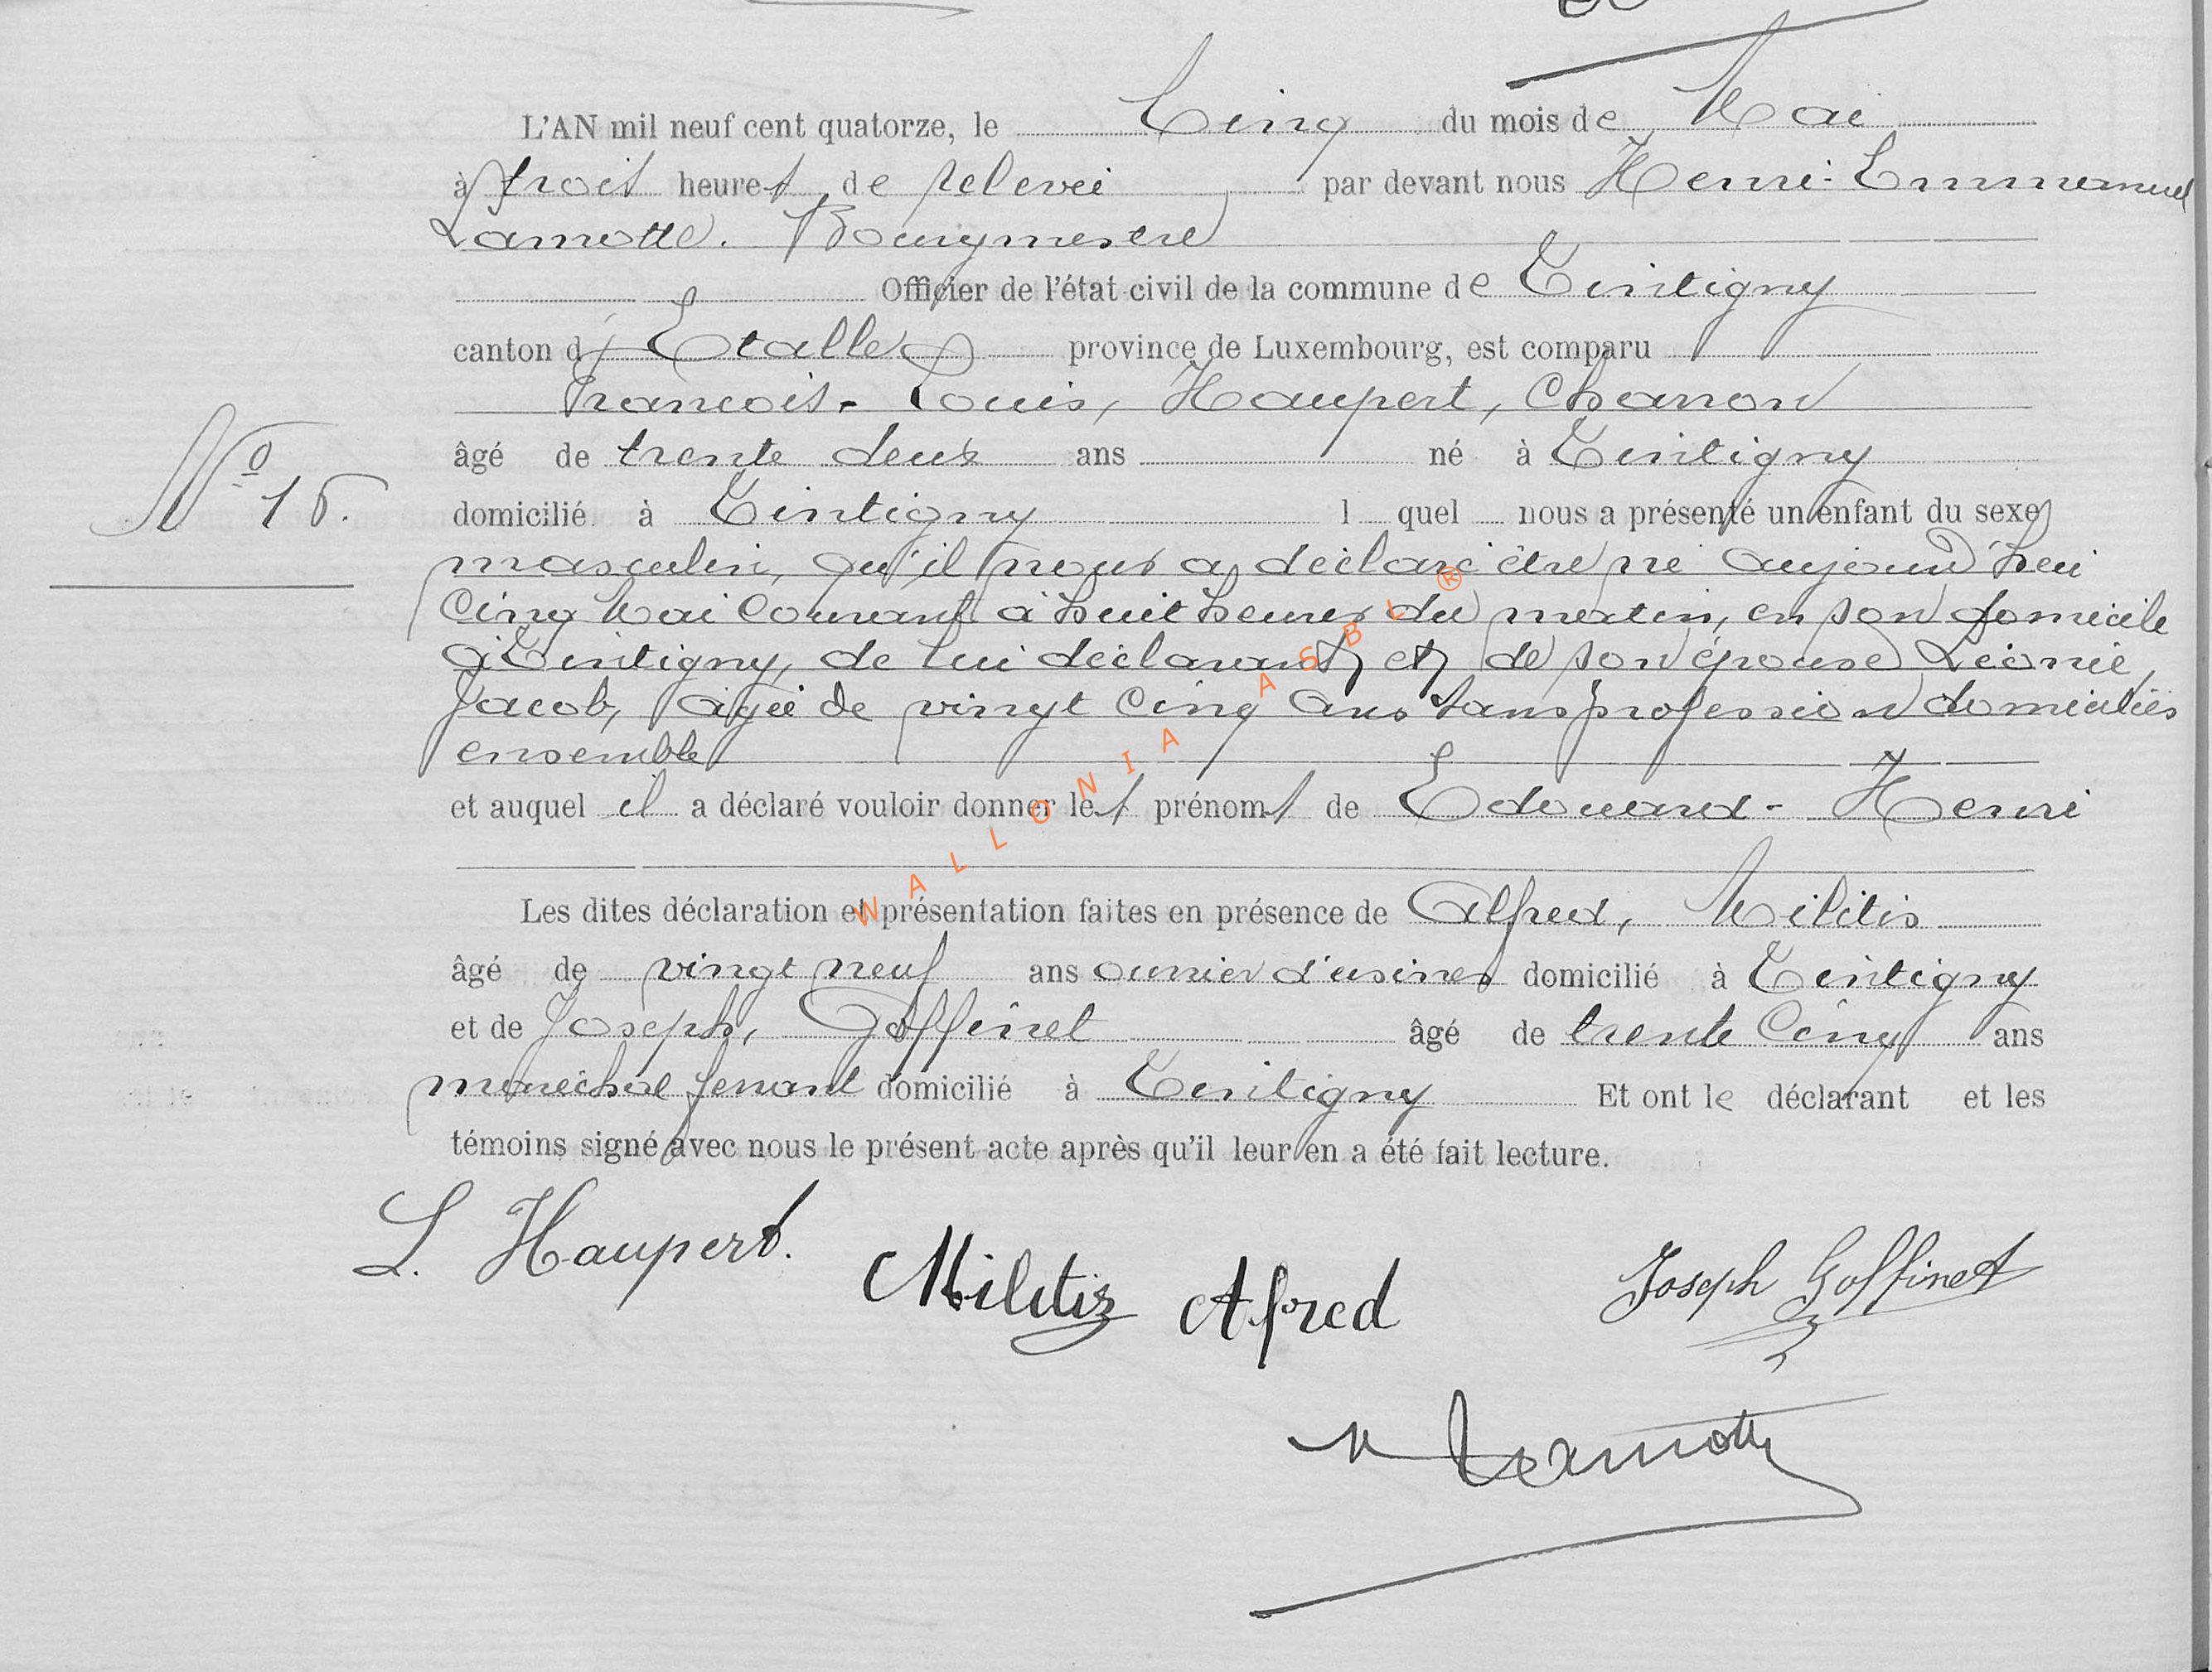 L'AN mil neuf cent quatorze, le Cinq du mois de Mai
à trois heures de relevée par devant nous Henri-Emmanuel
Lamotte. Bourgmestre
Officier de l'état civil de la commune de Tintigny
canton d'Etalle province de Luxembourg, est comparu
Francois-Louis, Haupert, Charron
âgé de trente deux ans né à Tintigny
N° 16. domicilié à Tintigny l quel nous a présenté un enfant du sexe
masculin, qu'il nous a déclaré être né aujourd'hui
Cinq Mai Courant à huit heures du matin, en son domicile
à Tintigny, de lui déclarant et de son épouse Léonie,
Jacob, âgée de vingt Cinq Ans sans profession domiciliés
ensemble
et auquel il a déclaré vouloir donner les prénoms de Edouard-Henri
Les dites déclaration et présentation faites en présence de Alfred, Militis
âgé de vingt neuf ans ouvrier d'usines domicilié à Tintigny
et de Joseph, Goffinet âgé de trente Cinq ans
maréchal ferrant domicilié à Tintigny Et ont le déclarant et les
témoins signé avec nous le présent acte après qu'il leur en a été fait lecture.
L. Haupert. Militiz Afred Joseph Goffinet
Lamotte
WALLONIA ASBL ®